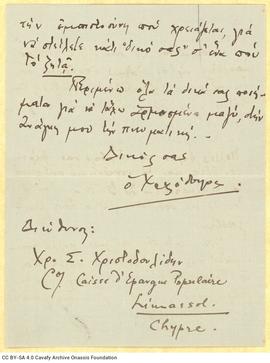 τὴν ἐμπιστοσύνη ποὺ χρειάζεται, γιὰ
νὰ στείλετε κάτι δικό σας σ' ἕνα ποὺ
τὸ ζητᾶ.
Περιμένω ὅλα τὰ δικά σας ποιή-
ματα γιὰ νὰ τἄχω μαζύ, στὴν
ἀνάγκη μου τὴν πνευματική.
Δικός σας
ὁ
Διεύθυνσι:
Χρ. Σ. Χριστοδουλίδην
C/o Caisse d'Epargne Populaire
Limassol.
Chypre.
CC BY-SA 4.0 Cavafy Archive Onassis Foundation